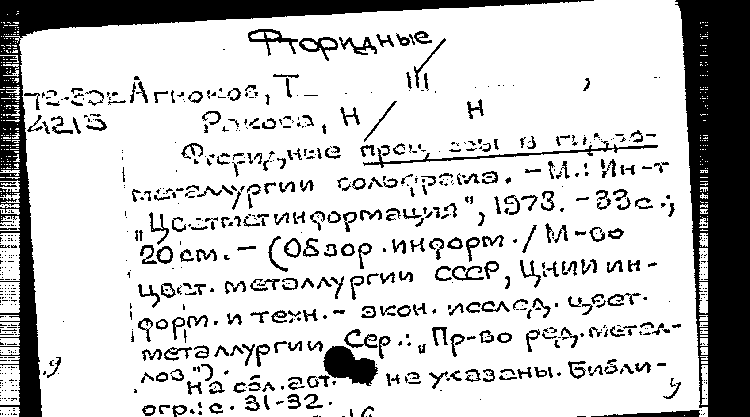 Фторидные
Агноков, Т Ш ,
4215 Ракова, Н Н
Фторидные процессы в гидро-
металлургии вольфрама. - М.: Ин-т
„Цветметинформация", 1973. - 33 с.;
20 см. - (Обзор. информ. / М-во
цвет. металлургии СССР, ЦНИИ ин-
форм. и техн.- экон. исслед. цвет.
металлургии. Сер.: „Пр-во ред. метал-
лов").
на обл. авт. не указаны. Библи-
огр.: с. 31-32.